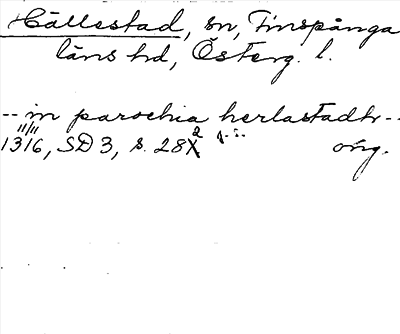 Hällestad, sn, Finspånga
läns hd, Österg. l.
-- in parochia herlastadhr --
11/11
1316, SD 3, s. 282 orig.